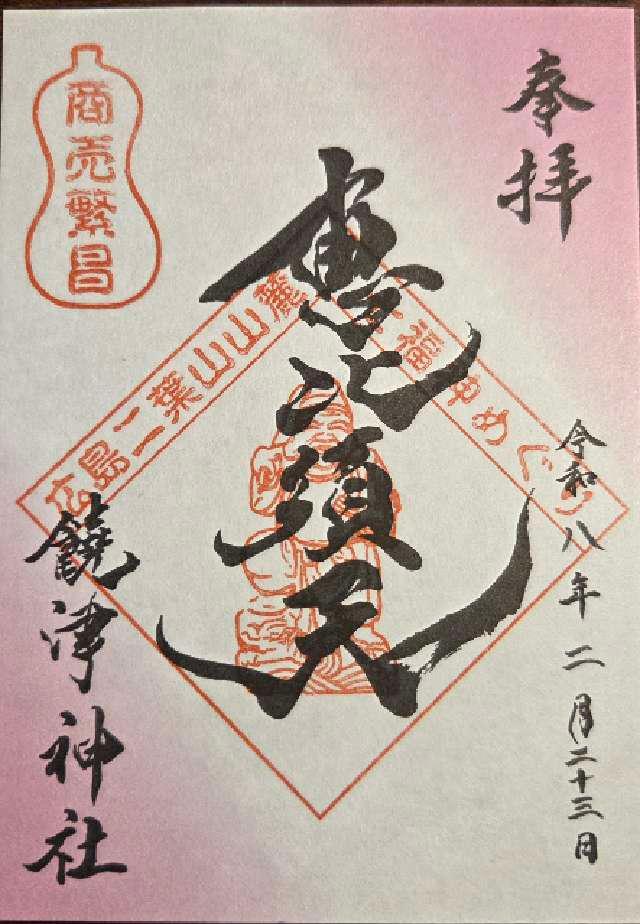 奉拝
令和八年二月二十三日
恵比須天
商売繁昌
広島二葉山山麓
七福神めぐり
饒津神社